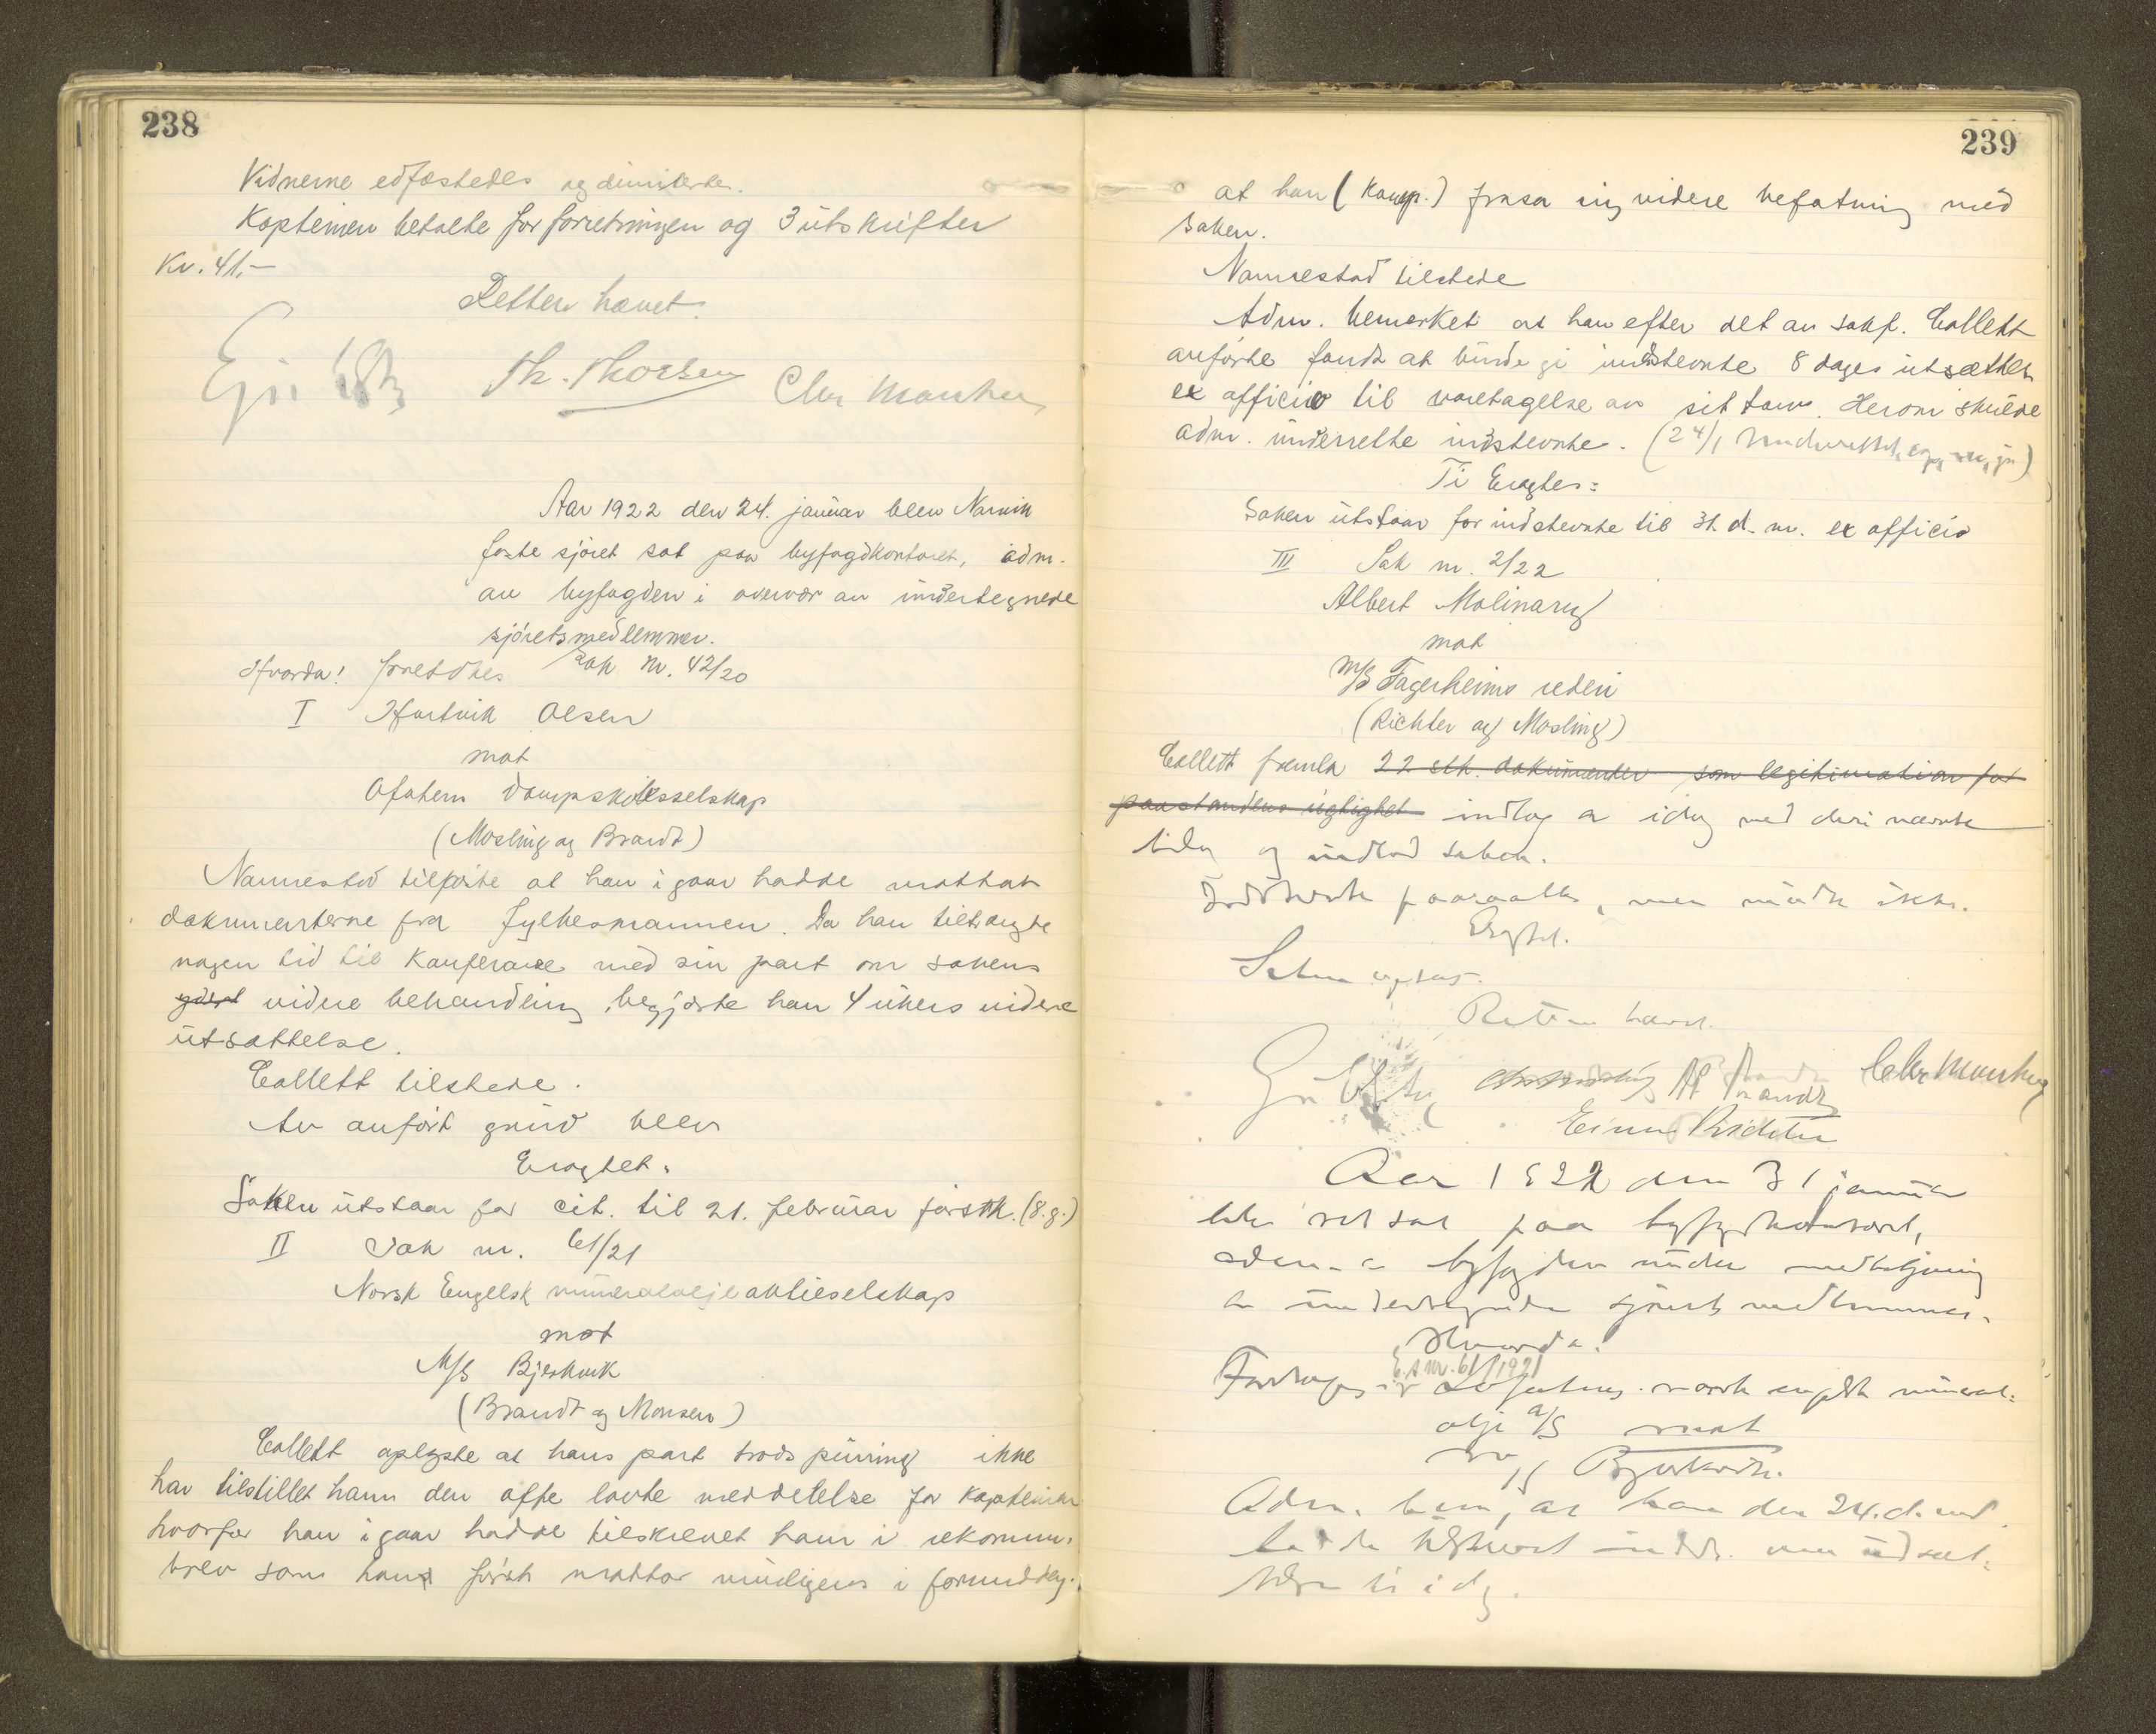 238
Vidnerne edfæstedes og dimitertes.
Kapteinen betalte for forretningen og 3 utskrifter
Kr. 41.-
Retten hævet.
Th. Thorsen Chr Monsen
Aar 1922 den 24. januar blev Narvik
faste sjöret sat paa byfogdkontoret, adm.
av byfogden i overvær av undertegnede
sjöretsmedlemmer.
Hvorda! foretokes Sak nr. 42/20
I Hartvik Olsen
mot
Ofotens Dampskibsselskap
(Mosling og Brandt)
Nannestad tilförte at han i gaar hadde mottat
dokumenterne fra fylkesmannen. Da han tiltrængte
nogen tid til konferanse med sin part om sakens
videre behandling, begjærte han 4 ukers videre
utsættelse.
Collett tilstede.
Av anfört grund blev
Eragtet:
Saken utstaar for cit. til 21. februar förstk. (8.g.)
II Sak nr. 61/21
Norsk Engelsk mineraloljeaktieselskap
mot
M/S Bjerkvik
(Brandt og Monsen)
Collett oplyste at hans part trods purring ikke
har tilstillet ham den ofte lovte meddelelse for kapteinen
hvorfor han igaar hadde tilskrevet ham i rekomm.
brev som han först mottar muligens i formiddag.
239
at han (Komp.) frasa sig videre befatning med
saken.
Nannestad tilstede
Adm. bemerket at han efter det av sakf. Collett
anförte fandt at burde gi indstevnte 8 dages utsættelse
ex officio til varetagelse av sit tarv. Herom skulde
adm. underrette indstevnte. (24/1
Ti Eragtes:
Saken utstaar for indstevnte til 31. d. m. ex officio
III Sak nr. 2/22
Albert Molinary
mot
M/S Fagerheims rederi
(Richter og Mosling)
Collett fremla 22 stk. dokumenter som legitimation for
paastandens rigtighet indlæg av idag med deri nævnte
bilag og indlod saken.
Indstevnte paaraabt, men mödte ikke.
Eragtet.
Saken optas.
Retten hævet.
Mosling Brandt Chr Monsen
Einar Richter
Aar 1922 den 31 januar
blev ret sat paa byfogdkontoret,
adm. av byfogden under medbetjening
av undertegnede sjöretsmedlemmer.
Hvorda!
S. nr. 61/1921
Foretages norsk engelsk mineral=
olje A/S mot
M/S Bjerkvik.
Adm. bem. at han den 24. d. md.
hadde underr. om utsæt=
telsen til idag.